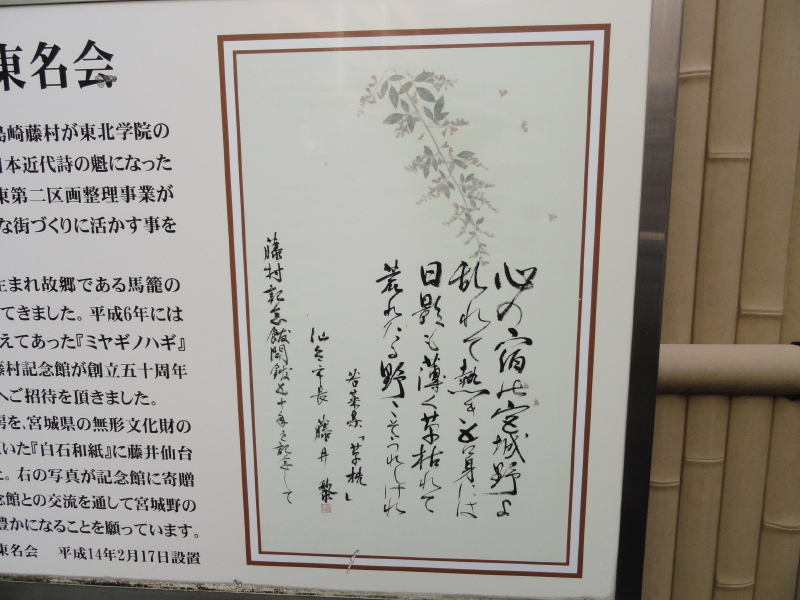 東名会
島崎藤村が東北学院の
日本近代詩の魁になった
東第二区画整理事業が
な街づくりに活かす事を
生まれ故郷である馬籠の
てきました。平成6年には
えてあった『ミヤギノハギ』
藤村記念館が創立五十周年
へご招待を頂きました。
房を、宮城県の無形文化財の
いた『白石和紙』に藤井仙台
た。右の写真が記念館に寄贈
念館との交流を通して宮城野の
豊かになることを願っています。
東名会 平成14年2月17日設置
心の宿の宮城野よ
乱れて熱き吾身には
日影も薄く草枯れて
荒れたる野こそうれしけれ
若菜集「草枕」
仙台市長 藤井黎
藤村記念館開館五十年を記念して